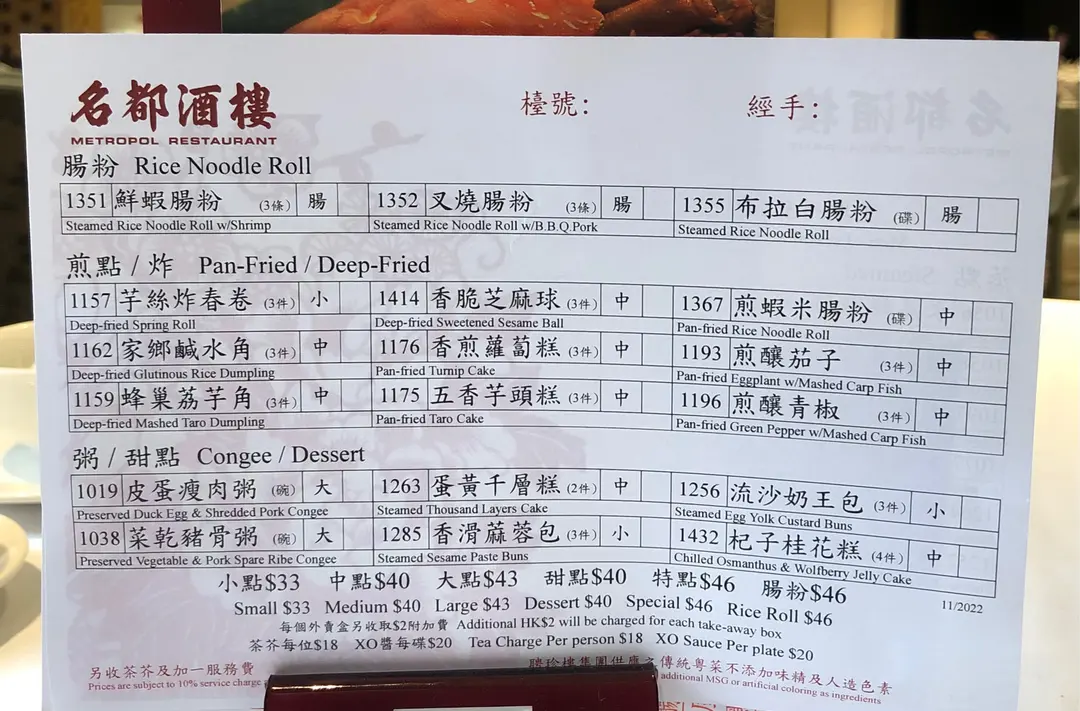 名都酒樓 檯號： 經手：
METROPOL RESTAURANT
腸粉 Rice Noodle Roll
1351 鮮蝦腸粉 (3條) 腸 1352 叉燒腸粉 (3條) 腸 1355 布拉白腸粉 (碟) 腸
Steamed Rice Noodle Roll w/Shrimp Steamed Rice Noodle Roll w/B.B.Q.Pork Steamed Rice Noodle Roll
煎點 / 炸 Pan-Fried / Deep-Fried
1157 芋絲炸春卷 (3件) 小 1414 香脆芝麻球 (3件) 中 1367 煎蝦米腸粉 (碟) 中
Deep-fried Spring Roll Deep-fried Sweetened Sesame Ball Pan-fried Rice Noodle Roll
1162 家鄉鹹水角 (3件) 中 1176 香煎蘿蔔糕 (3件) 中 1193 煎釀茄子 (3件) 中
Deep-fried Glutinous Rice Dumpling Pan-fried Turnip Cake Pan-fried Eggplant w/Mashed Carp Fish
1159 蜂巢荔芋角 (3件) 中 1175 五香芋頭糕 (3件) 中 1196 煎釀青椒 (3件) 中
Deep-fried Mashed Taro Dumpling Pan-fried Taro Cake Pan-fried Green Pepper w/Mashed Carp Fish
粥 / 甜點 Congee / Dessert
1019 皮蛋瘦肉粥 (碗) 大 1263 蛋黃千層糕 (2件) 中 1256 流沙奶王包 (3件) 小
Preserved Duck Egg & Shredded Pork Congee Steamed Thousand Layers Cake Steamed Egg Yolk Custard Buns
1038 菜乾豬骨粥 (碗) 大 1285 香滑蔴蓉包 (3件) 小 1432 杞子桂花糕 (4件) 中
Preserved Vegetable & Pork Spare Ribe Congee Steamed Sesame Paste Buns Chilled Osmanthus & Wolfberry Jelly Cake
小點$33 中點$40 大點$43 甜點$40 特點$46 腸粉$46
Small $33 Medium $40 Large $43 Dessert $40 Special $46 Rice Roll $46 11/2022
每個外賣盒另收取$2附加費 Additional HK$2 will be charged for each take-away box
茶芥每位$18 XO醬每碟$20 Tea Charge Per person $18 XO Sauce Per plate $20
另收茶芥及加一服務費 聘珍樓集團供應之傳統粵菜不添加味精及人造色素
Prices are subject to 10% service charge additional MSG or artificial coloring as ingredients